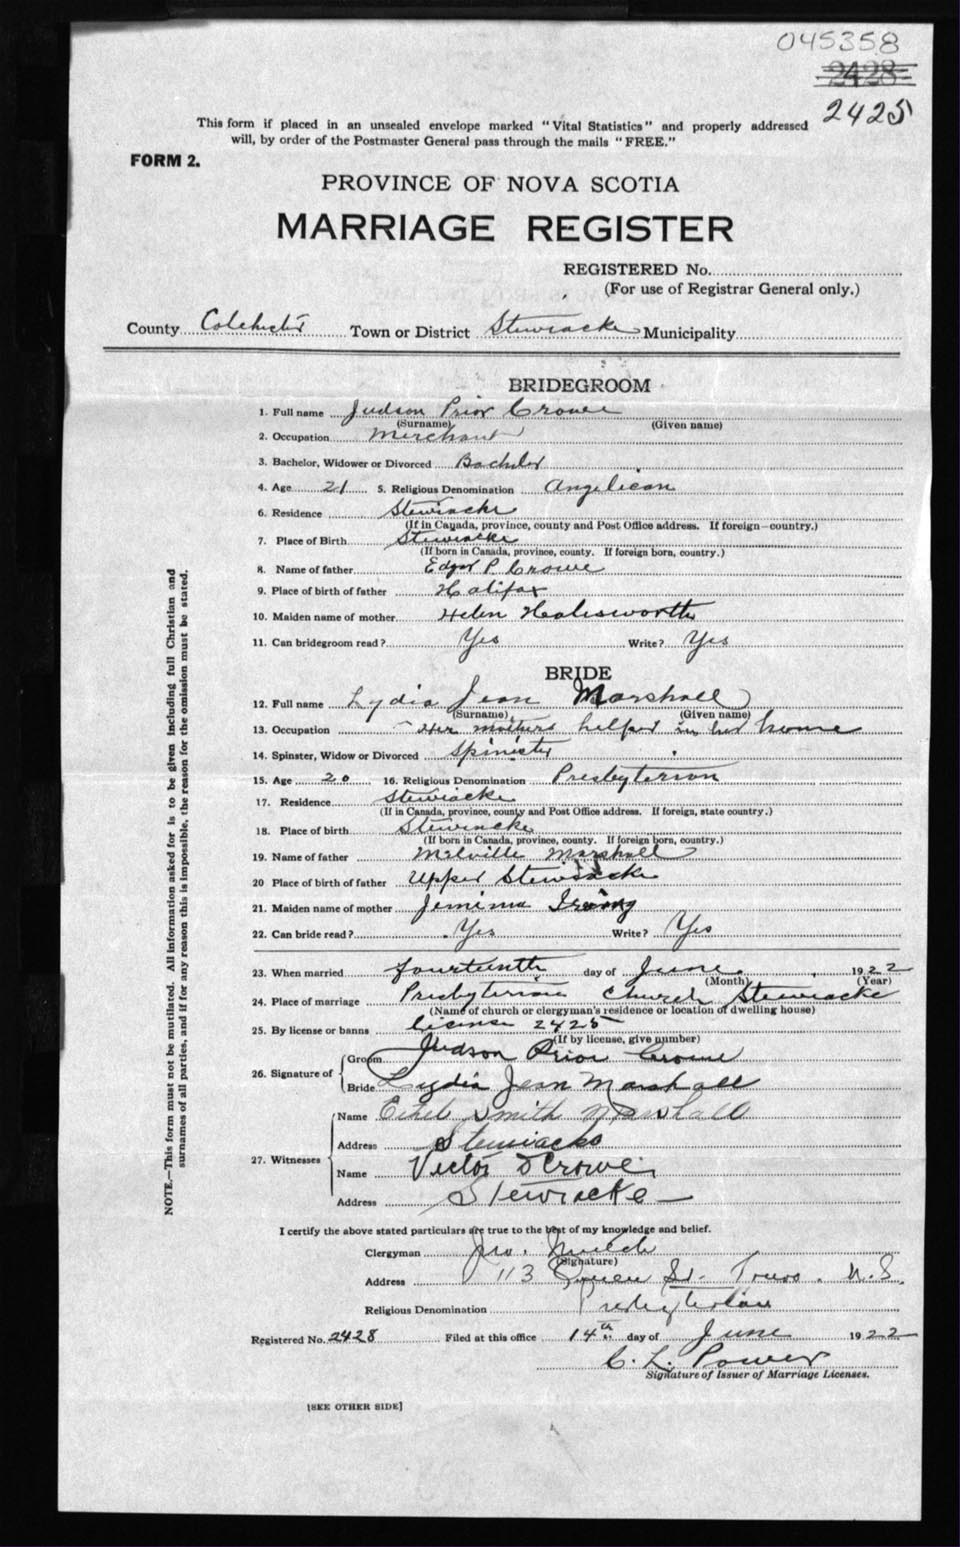 045358
2428
2425
This form if placed in an unsealed envelope marked "Vital Statistics" and properly addressed
will, by order of the Postmaster General pass through the mails "FREE."
FORM 2.
PROVINCE OF NOVA SCOTIA
MARRIAGE REGISTER
REGISTERED No.
(For use of Registrar General only.)
County Colchester Town or District Stewiacke Municipality
BRIDEGROOM
1. Full name Judson Prior Crowe
(Surname) (Given name)
2. Occupation Merchant
3. Bachelor, Widower or Divorced Bachelor
4. Age 21 5. Religious Denomination Angelican
6. Residence Stewiacke
(If in Canada, province, county and Post Office address. If foreign—country.)
7. Place of Birth Stewiacke
(If born in Canada, province, county. If foreign born, country.)
8. Name of father Edgar P. Crowe
9. Place of birth of father Halifax
10. Maiden name of mother Helen
11. Can bridegroom read? Yes Write? Yes
BRIDE
12. Full name Lydia Jean Marshall
(Surname) (Given name)
13. Occupation Her mothers helper in her home
14. Spinster, Widow or Divorced Spinister
15. Age 20 16. Religious Denomination Presbyterian
17. Residence Stewiacke
(If in Canada, province, county and Post Office address. If foreign, state country.)
18. Place of birth Stewiacke
(If born in Canada, province, county. If foreign born, country.)
19. Name of father Melville Marshall
20 Place of birth of father Upper Stewiacke
21. Maiden name of mother Jemima Irving
22. Can bride read? Yes Write? Yes
23. When married fourteenth day of June 1922
(Month) (Year)
24. Place of marriage Presbyterian Church Stewiacke
(Name of church or clergyman's residence or location of dwelling house)
25. By license or banns License 2425
(If by license, give number)
26. Signature of Groom Judson Prior Crowe
Bride Lydia Jean Marshall
27. Witnesses Name Ethel Smith Marshall
Address Stewiacke
Name Victor D Crowe
Address Stewiacke
I certify the above stated particulars are true to the best of my knowledge and belief.
Clergyman Jno.
(Signature)
Address 113 Queen St. Truro. N.S.
Religious Denomination Presbyterian
Registered No. 2428 Filed at this office 14th day of June 1922
C. L. Power
Signature of Issuer of Marriage Licenses.
[SEE OTHER SIDE]
NOTE.—This form must not be mutilated. All information asked for is to be given including full Christian and
surnames of all parties, and if for any reason this is impossible, the reason for the omission must be stated.